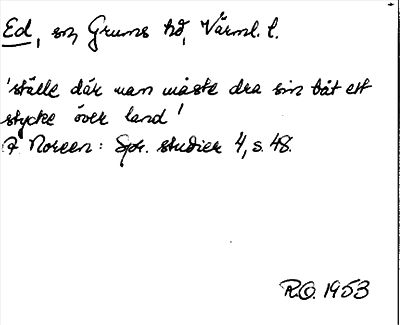 Ed, sn Grums hd, Värml. l.
'ställe där man måste dra sin båt ett
stycke över land'
A Noreen: Spr. studier 4, s. 48.
R.O. 1953